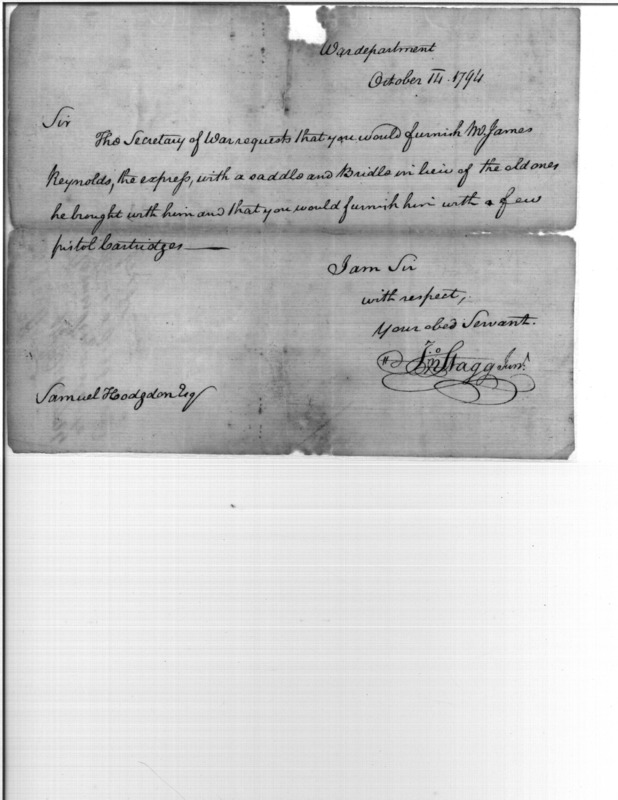 War department
October 14. 1794
Sir
The Secretary of War requests that you would furnish Mr. James
Reynolds, the express, with a saddle and Bridle in lieu of the old ones
he brought with him and that you would furnish him with a few
pistol Cartridges —
I am Sir
with respect,
Your obed Servant.
Jno Stagg Junr.
Samuel Hodgdon Esq